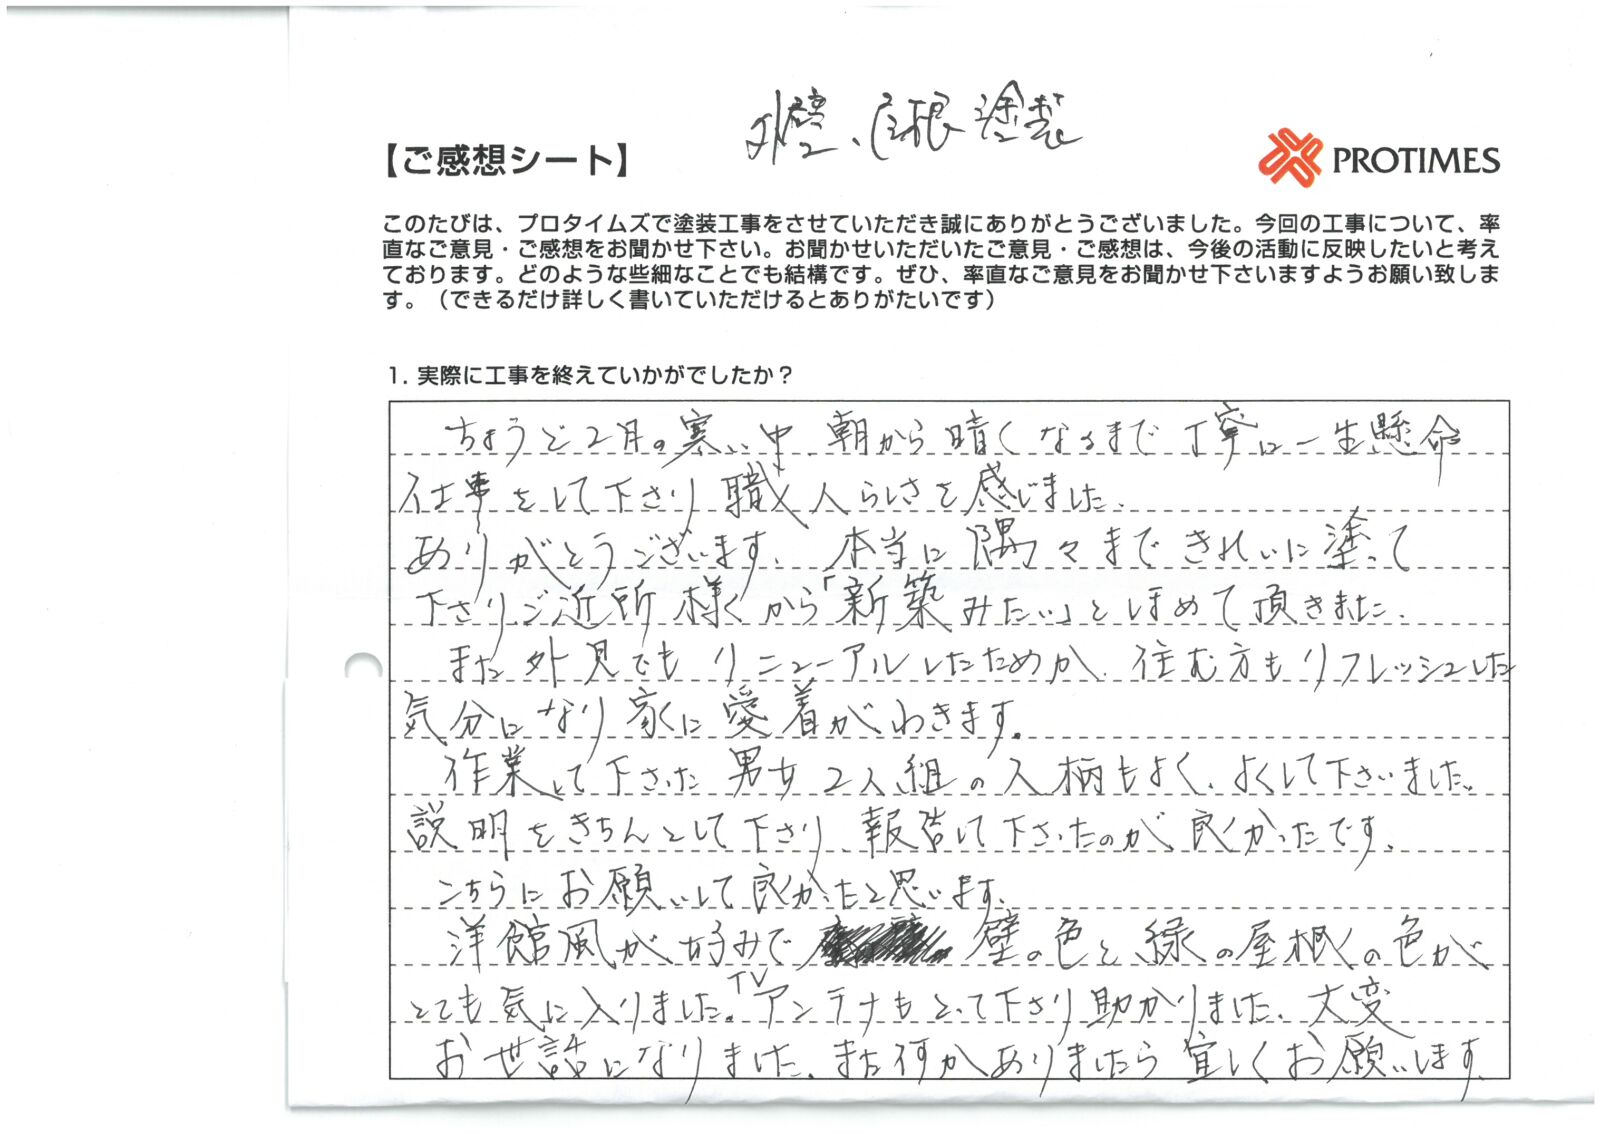 外壁、屋根塗装
【ご感想シート】
PROTIMES
このたびは、プロタイムズで塗装工事をさせていただき誠にありがとうございました。今回の工事について、率
直なご意見・ご感想をお聞かせ下さい。お聞かせいただいたご意見・ご感想は、今後の活動に反映したいと考え
ております。どのような些細なことでも結構です。ぜひ、率直なご意見をお聞かせ下さいますようお願い致しま
す。（できるだけ詳しく書いていただけるとありがたいです）
1. 実際に工事を終えていかがでしたか？
ちょうど2月の寒い中、朝から暗くなるまで丁寧に一生懸命
仕事をして下さり職人らしさを感じました。
ありがとうございます。本当に隅々まできれいに塗って
下さりご近所様から「新築みたい」とほめて頂きました。
また外見でもリニューアルしたためか、住む方もリフレッシュした
気分になり家に愛着がわきます。
作業して下さった男女2人組の人柄もよく、よくして下さいました。
説明をきちんとして下さり、報告して下さったのが良かったです。
こちらにお願いして良かったと思います。
洋館風が好みで 壁の色と、緑の屋根の色が
とても気に入りました。TVアンテナもとって下さり助かりました。大変
お世話になりました。また何かありましたら宜しくお願いします。